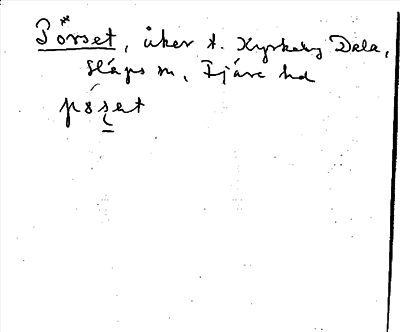 Pörset, åker t. Kyrkeby Dala,
Släps sn, Fjäre hd